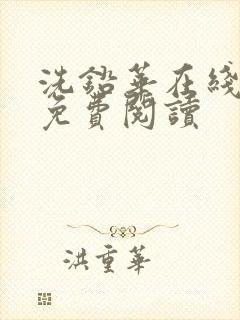 洗鉛華在綫
免費閱讀
洪重華